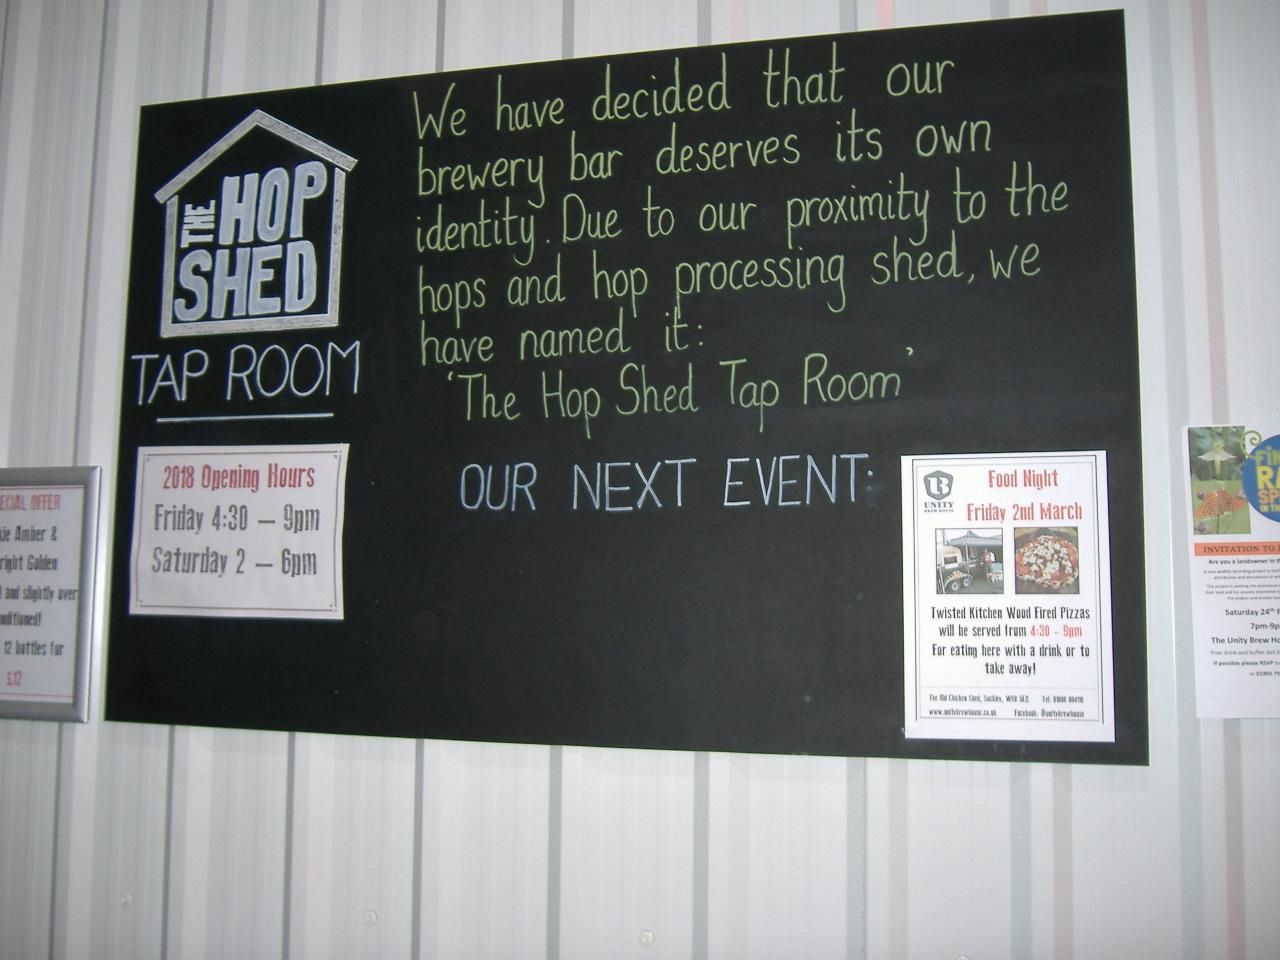 THE HOP
SHED
TAP ROOM
We have decided that our
brewery bar deserves its own
identity. Due to our proximity to the
hops and hop processing shed, we
have named it:
'The Hop Shed Tap Room'
2018 Opening Hours
Friday 4:30 – 9pm
Saturday 2 – 6pm
OUR NEXT EVENT:
UNITY
BREW HOUSE
Food Night
Friday 2nd March
Twisted Kitchen Wood Fired Pizzas
will be served from 4:30 - 9pm
For eating here with a drink or to
take away!
The Old Chicken Shed, Suckley, WR6 5EQ Tel:
www.unitybrewhouse.co.uk Facebook: @unitybrewhouse
OFFER
Amber &
Golden
and slightly over
12 bottles for
£12
IN THE
INVITATION TO
Are you a landowner in
Saturday 24th
The Unity Brew
If possible please RSVP